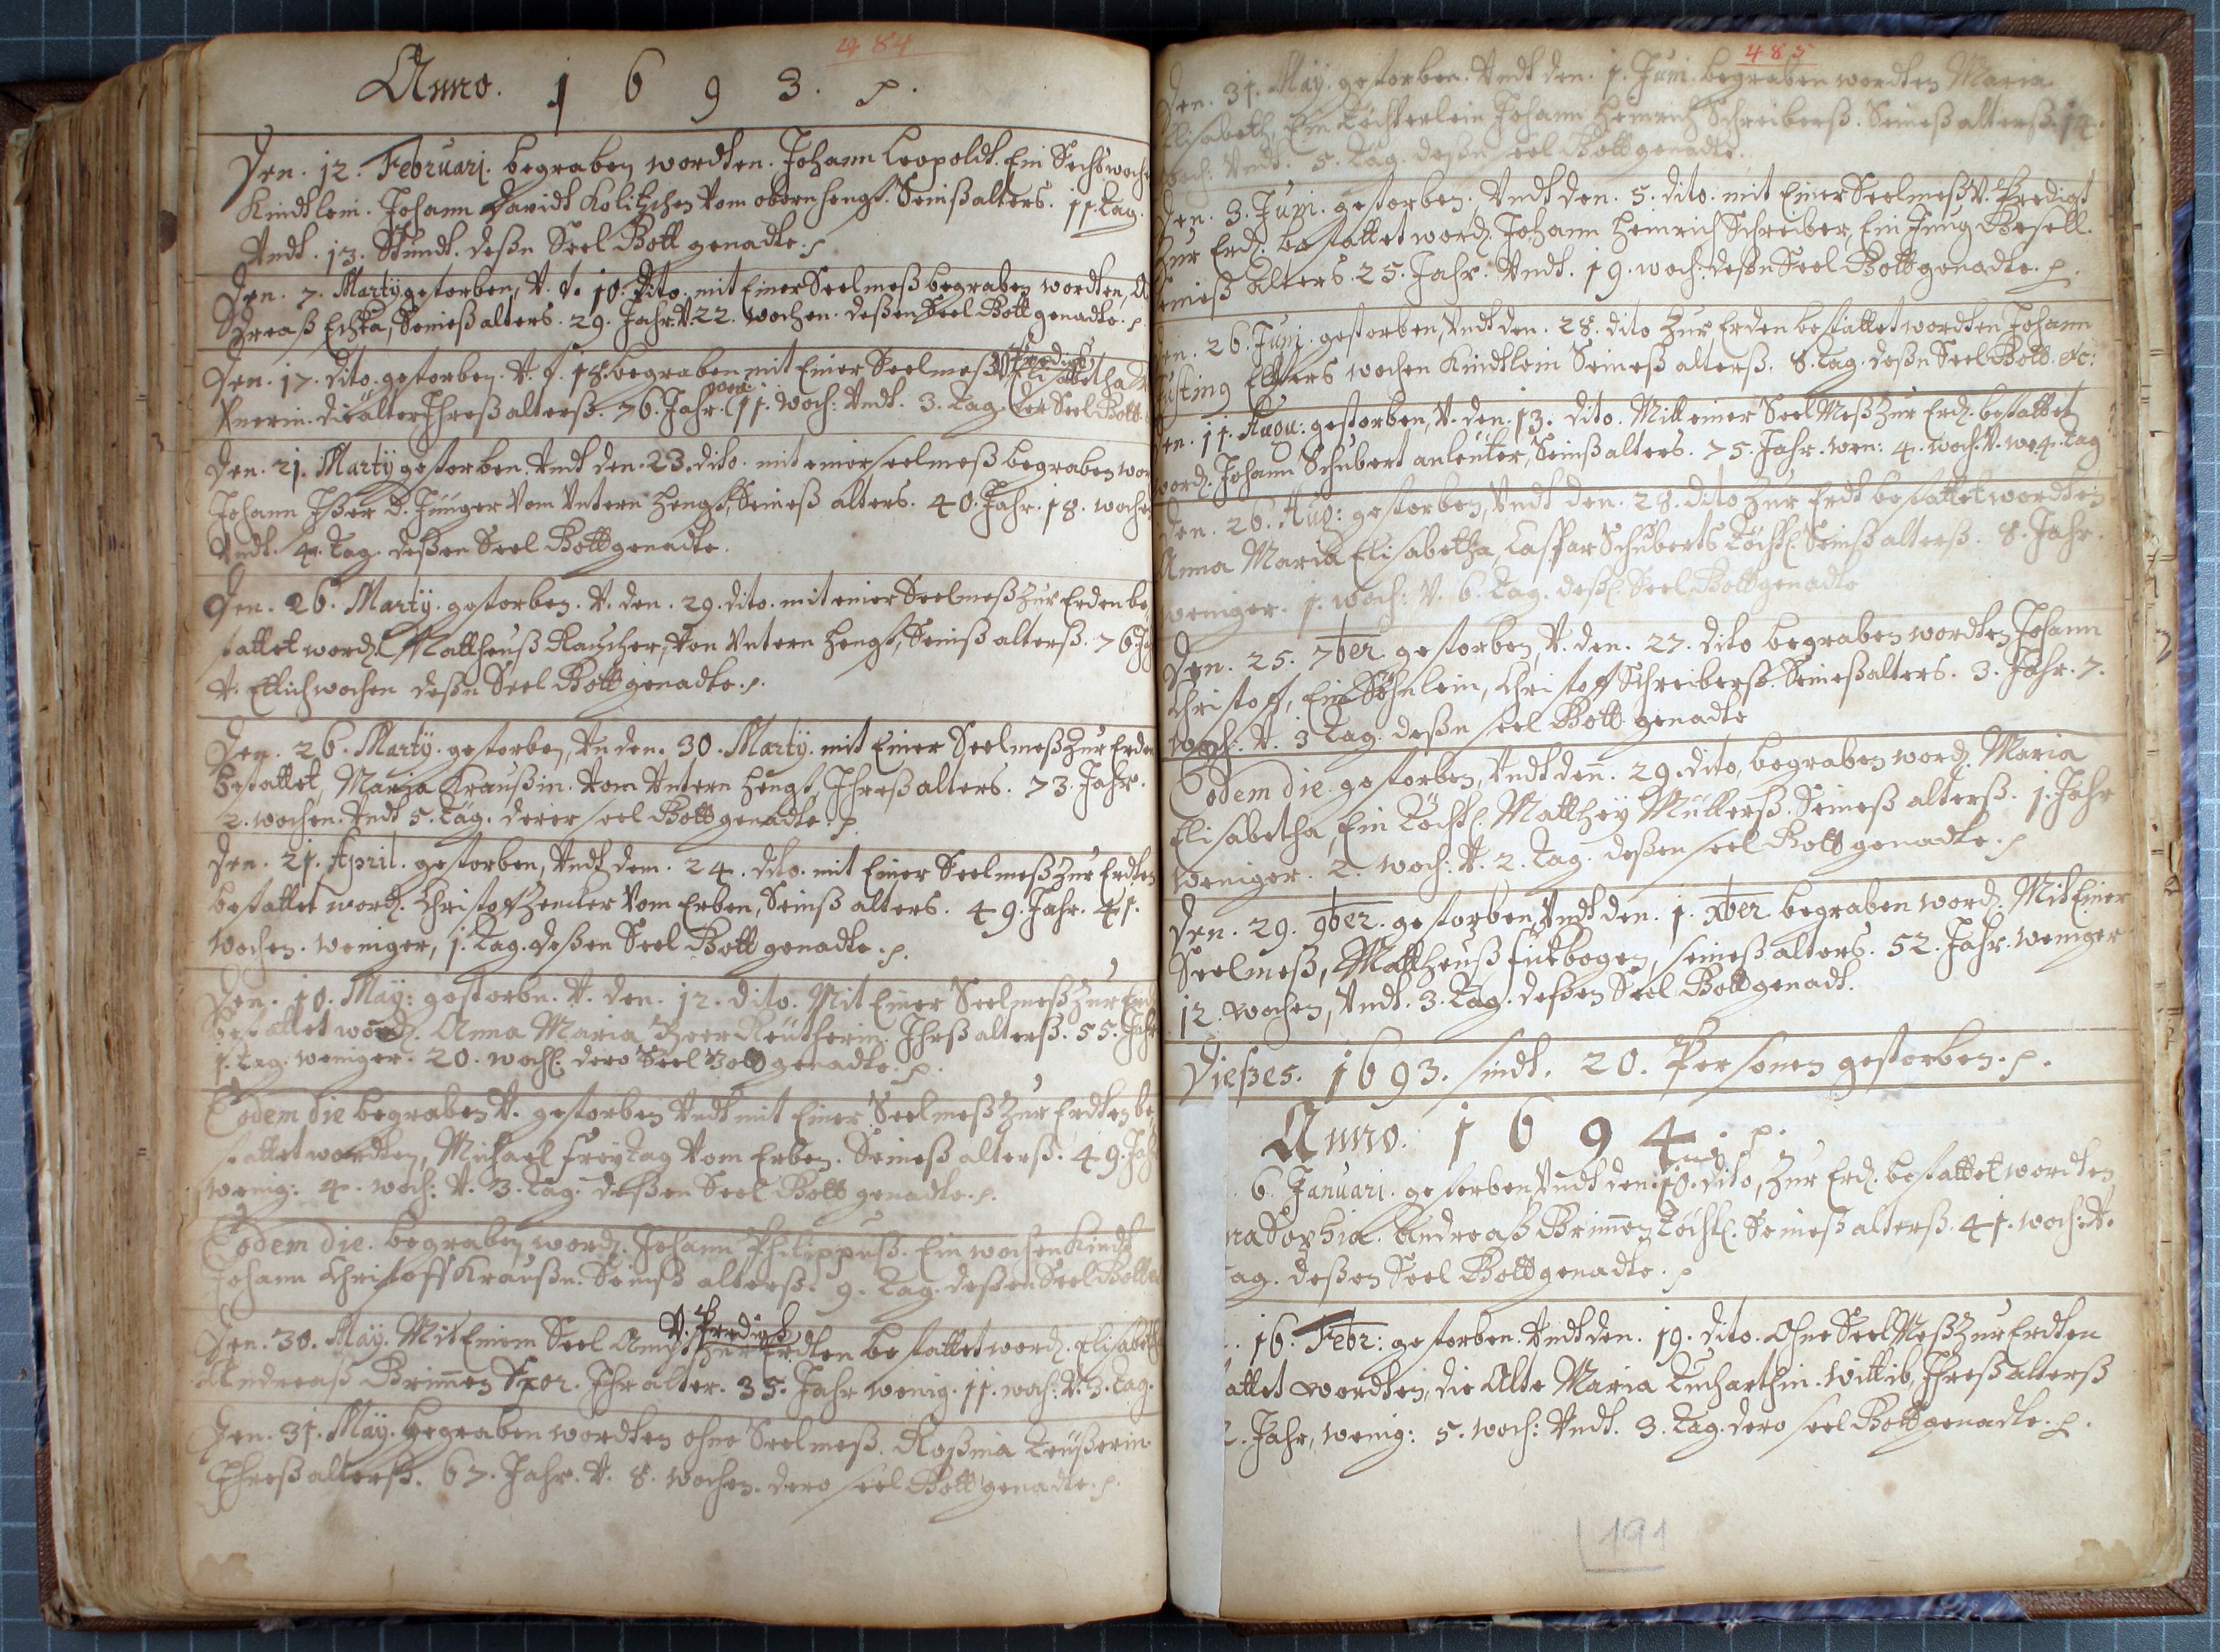 484
Anno. 1 6 9 3. p.
Den. 12. Februarj. begraben wordten. Johann Leopoldt. Ein Sechswoch
Kindtlein. Johann Davidt Kolitzschen Vom obern hengst. Seinß alters. 11. Tag.
Undt. 13. Stundt. deßen Seel Gott genadte. p
Den. 7. Martÿ gestorben, V. d. 10. Dito. mit Einer Seelmeß begraben wordten, A
dreaß Seineß alters. 29. Jahr. V. 22. wochen. deßen Seel Gott genadte. p.
V. Predigt
Den. 17. dito. gestorben. V. d. 18. begraben mit Einer Seelmeß Elisabetha
wen:
die älter Ihreß alterß. 76. Jahr. 11. woch: Undt. 3. Tag. der Seel Gott
Den. 21. Martÿ gestorben. Undt den. 23. dito. mit einer seelmeß begraben wor
Johann d. Jünger Vom Untern hengst, Seineß alters. 40. Jahr. 18. wochen
Undt. 4. Tag. deßen Seel Gott genadte.
Den. 26. Martÿ. gestorben. V. den. 29. dito. mit einer Seelmeß zur Erden be,
stattet word. Mattheuß Rauscher, Von Untern hengst, Seinß alterß. 76. Ja
V. Etlich wochen deßen Seel Gott genadte. p.
Den. 26. Martÿ. gestorben, Vn den. 30. Martÿ. mit Einer Seelmeß zur Erden
bestattet, Maria Kraußin. Vom Untern hengst, Ihreß alters. 73. Jahr.
2. wochen. Undt 5. Tag. derer seel Gott genadte. p
Den. 21. April. gestorben, Undt dem. 24. dito. mit Einer Seelmeß zur Erdten
bestattet word. Christoff Vom Erben, Seinß alters. 49. Jahr. 41.
wochen. weniger, 1. Tag. deßen Seel Gott genadte. p.
Den. 10. Maÿ: gestorbn. V. den. 12. dito. Mit Einer Seelmeß zur Erd
bestattet word. Anna Maria Beer Reütherin. Ihrß alterß. 55. Jahr
1. Tag. weniger. 20. woch. dero Seel Gott genadte. p.
Eodem die begraben V. gestorben Undt mit Einer Seelmeß zur Erdten be,
stattet wordten, Michael Freÿtag Vom Erben. Seineß alterß. 49. Jahr
wenig: 4. woch: V. 3. Tag. deßen Seel Gott genadte. p.
Eodem die. begraben word. Johann Philippuß. Ein wochen Kindt
Johann Christoff Kraußn. Seinß alterß. 9. Tag. deßen Seel Gott
V. Predigt
Den. 30. Maÿ. Mit Einem Seel Ampt zur Erdten bestattet word. Elisabeth
Andreaß Brimen Ihr alter. 35. Jahr wenig. 11. woch: V. 3. Tag.
Den. 31. Maÿ. begraben wordten ohne Seelmeß. Roßina Teüßerin
Ihreß alterß. 67. Jahr. V. 8. wochen. dero seel Gott genadte. p.
485
Den. 31. Maÿ. gestorben. Undt den. 1. Juni. begraben wordten Maria
Elisabeth, Ein Töchterlein Johann Heinrich Schreiberß. Seineß alterß. 14.
woch: Undt. 5. Tag. deßen seel Gott genadte.
Den. 3. Juni. gestorben. Undt den. 5. dito. mit Einer Seelmeß V. Predigt
zur Erd. bestattet word. Johann Heinrich Schreiber, Ein Jung Gesell.
Seineß alters. 25. Jahr. Undt. 19. woch: deßen Seel Gott genadte. p.
Den. 26. Juni. gestorben, Undt den. 28. dito zur Erden bestattet wordten Johann
wochen Kindtlein Seineß alterß. 8. Tag. deßen Seel Gott. etc:
Den. 11. Augu: gestorben, V. den. 13. dito. Mitt einer Seel Meß zur Erd. bestattet
word. Johann Schubert Seinß alters. 75. Jahr. wen: 4. woch. V. we 4. Tag
Den. 26. Aug: gestorben, Undt den. 28. dito zur Erdt bestattet wordten
Anna Maria Elisabetha, Caspar Schuberts Töchtl. Seinß alterß. 8. Jahr.
weniger. 1. woch: V. 6. Tag. deßl. Seel Gott genadte
Den. 25. 7ber. gestorben, V. den. 27. dito begraben wordten Johann
Christoff, Ein Söhnlein, Christoff Schreiberß. Seineß alters. 3. Jahr. 7.
woch: V. 3 Tag. deßen seel Gott genadte
Eodem die. gestorben, Undt den. 29. dito, begraben word. Maria
Elisabetha, Ein Töchtl. Matthey Müllerß. Seineß alterß. 1. Jahr
weniger. 2. woch: V. 2. Tag. deßen seel Gott genadte. p
Den. 29. 9ber. gestorben, Undt den. 1. Xber begraben word. Mit Einer
Seelmeß, Mattheuß Fickbogen, seineß alters. 52. Jahr. weniger
12. wochen, Undt. 3. Tag. deßen Seel Gott genadt.
Dießes. 1693. sindt. 20. Personen gestorben. p.
Anno. 1 6 9 4. p.
6. Januari. gestorben, Undt den. 10. dito, zur Erd. bestattet wordten
na Sophia. Andreaß Brimen Töchtl. Seineß alterß. 41. woch. V.
ag. deßen Seel Gott genadte. p
. 16. Febr: gestorben. Undt den. 19. dito. Ohne Seel Meß zur Erdten
attet wordten, die Alte Maria Wittib, Ihreß alterß
2. Jahr, wenig: 5. woch: Undt. 3. Tag. dero seel Gott genadte. p.
191